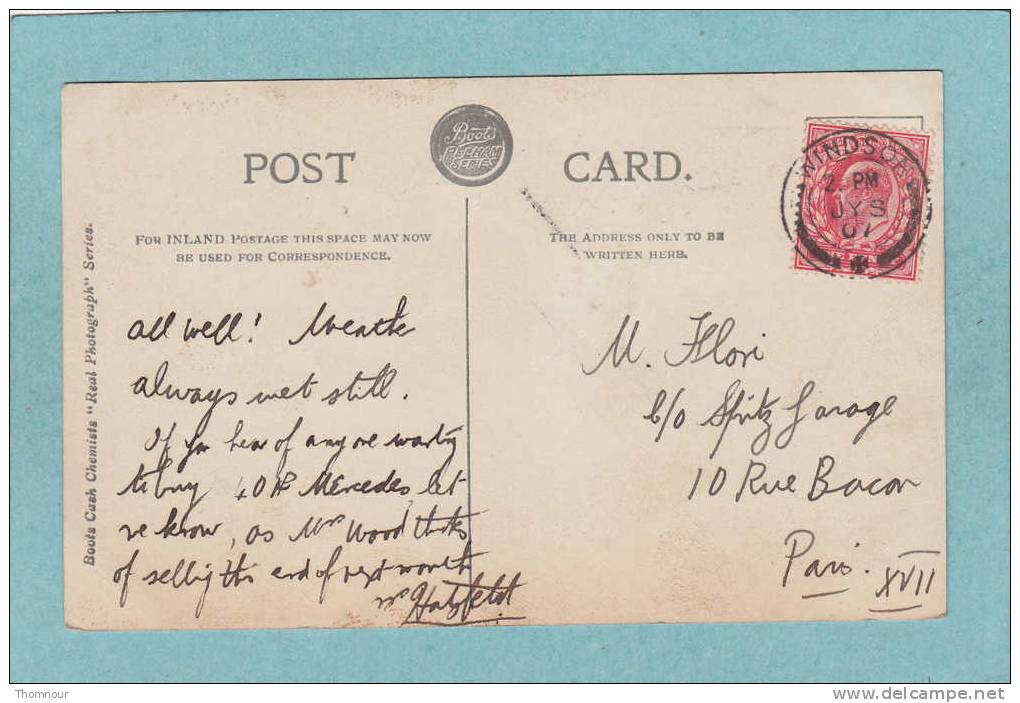 POST CARD.
Boots
PELHAM
SERIES
WINDSOR
2. PM
JY 8
07
FOR INLAND POSTAGE THIS SPACE MAY NOW
BE USED FOR CORRESPONDENCE.
THE ADDRESS ONLY TO BE
WRITTEN HERE.
Boots Cash Chemists "Real Photograph" Series.
All well!
always wet still.
If you hear of anyone wanting
to buy 40 HP Mercedes, let
me know, as Mrs Wood thinks
of selling this end of next month
Hatzfeldt
M. Flori
c/o Spitz Garage
10 Rue Bacon
Paris.
XVII
Thomnour
http://www.delcampe.net